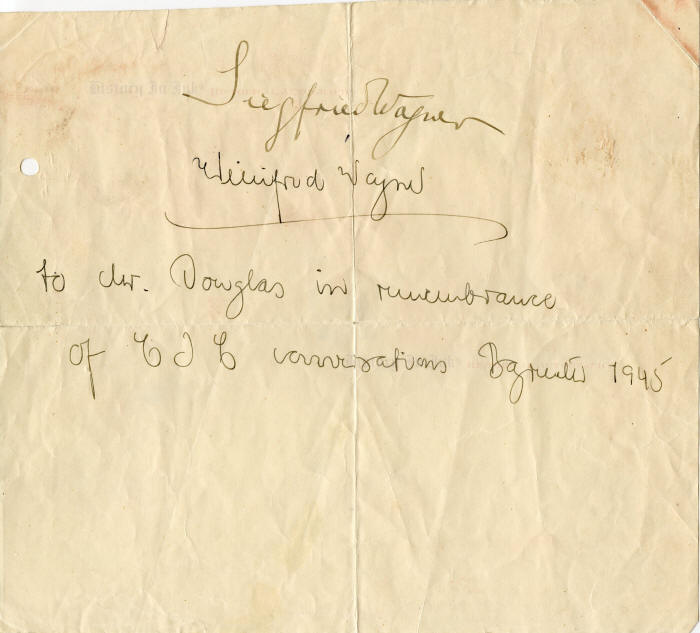 Siegfried Wagner
Winifred Wagner
to Mr. Douglas in remembrance
of C J C conversations Bayreuth 1945